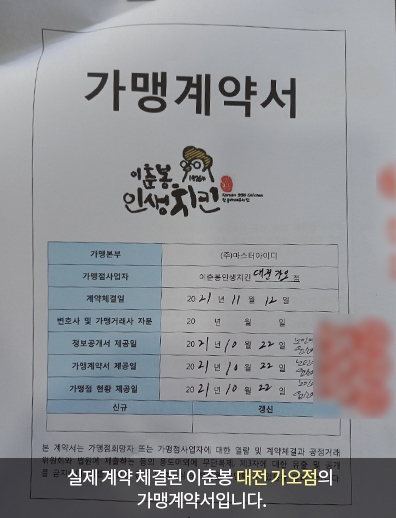 가맹계약서
이춘봉
인생치킨
가맹본부 (주)마스터마이디
가맹점사업자 이춘봉인생치킨 대전가오 점
계약체결일 2021년 11월 12일
변호사 및 가맹거래사 자문 20 년 월 일
정보공개서 제공일 2021년 10월 22일
가맹계약서 제공일 2021년 10월 22일
가맹점 현황 제공일 2021년 10월 22일
신규 갱신
본 계약서는 가맹점희망자 또는 가맹점사업자에 대한 열람 및 계약체결과 공정거래
실제 계약 체결된 이춘봉 대전 가오점의
가맹계약서입니다.